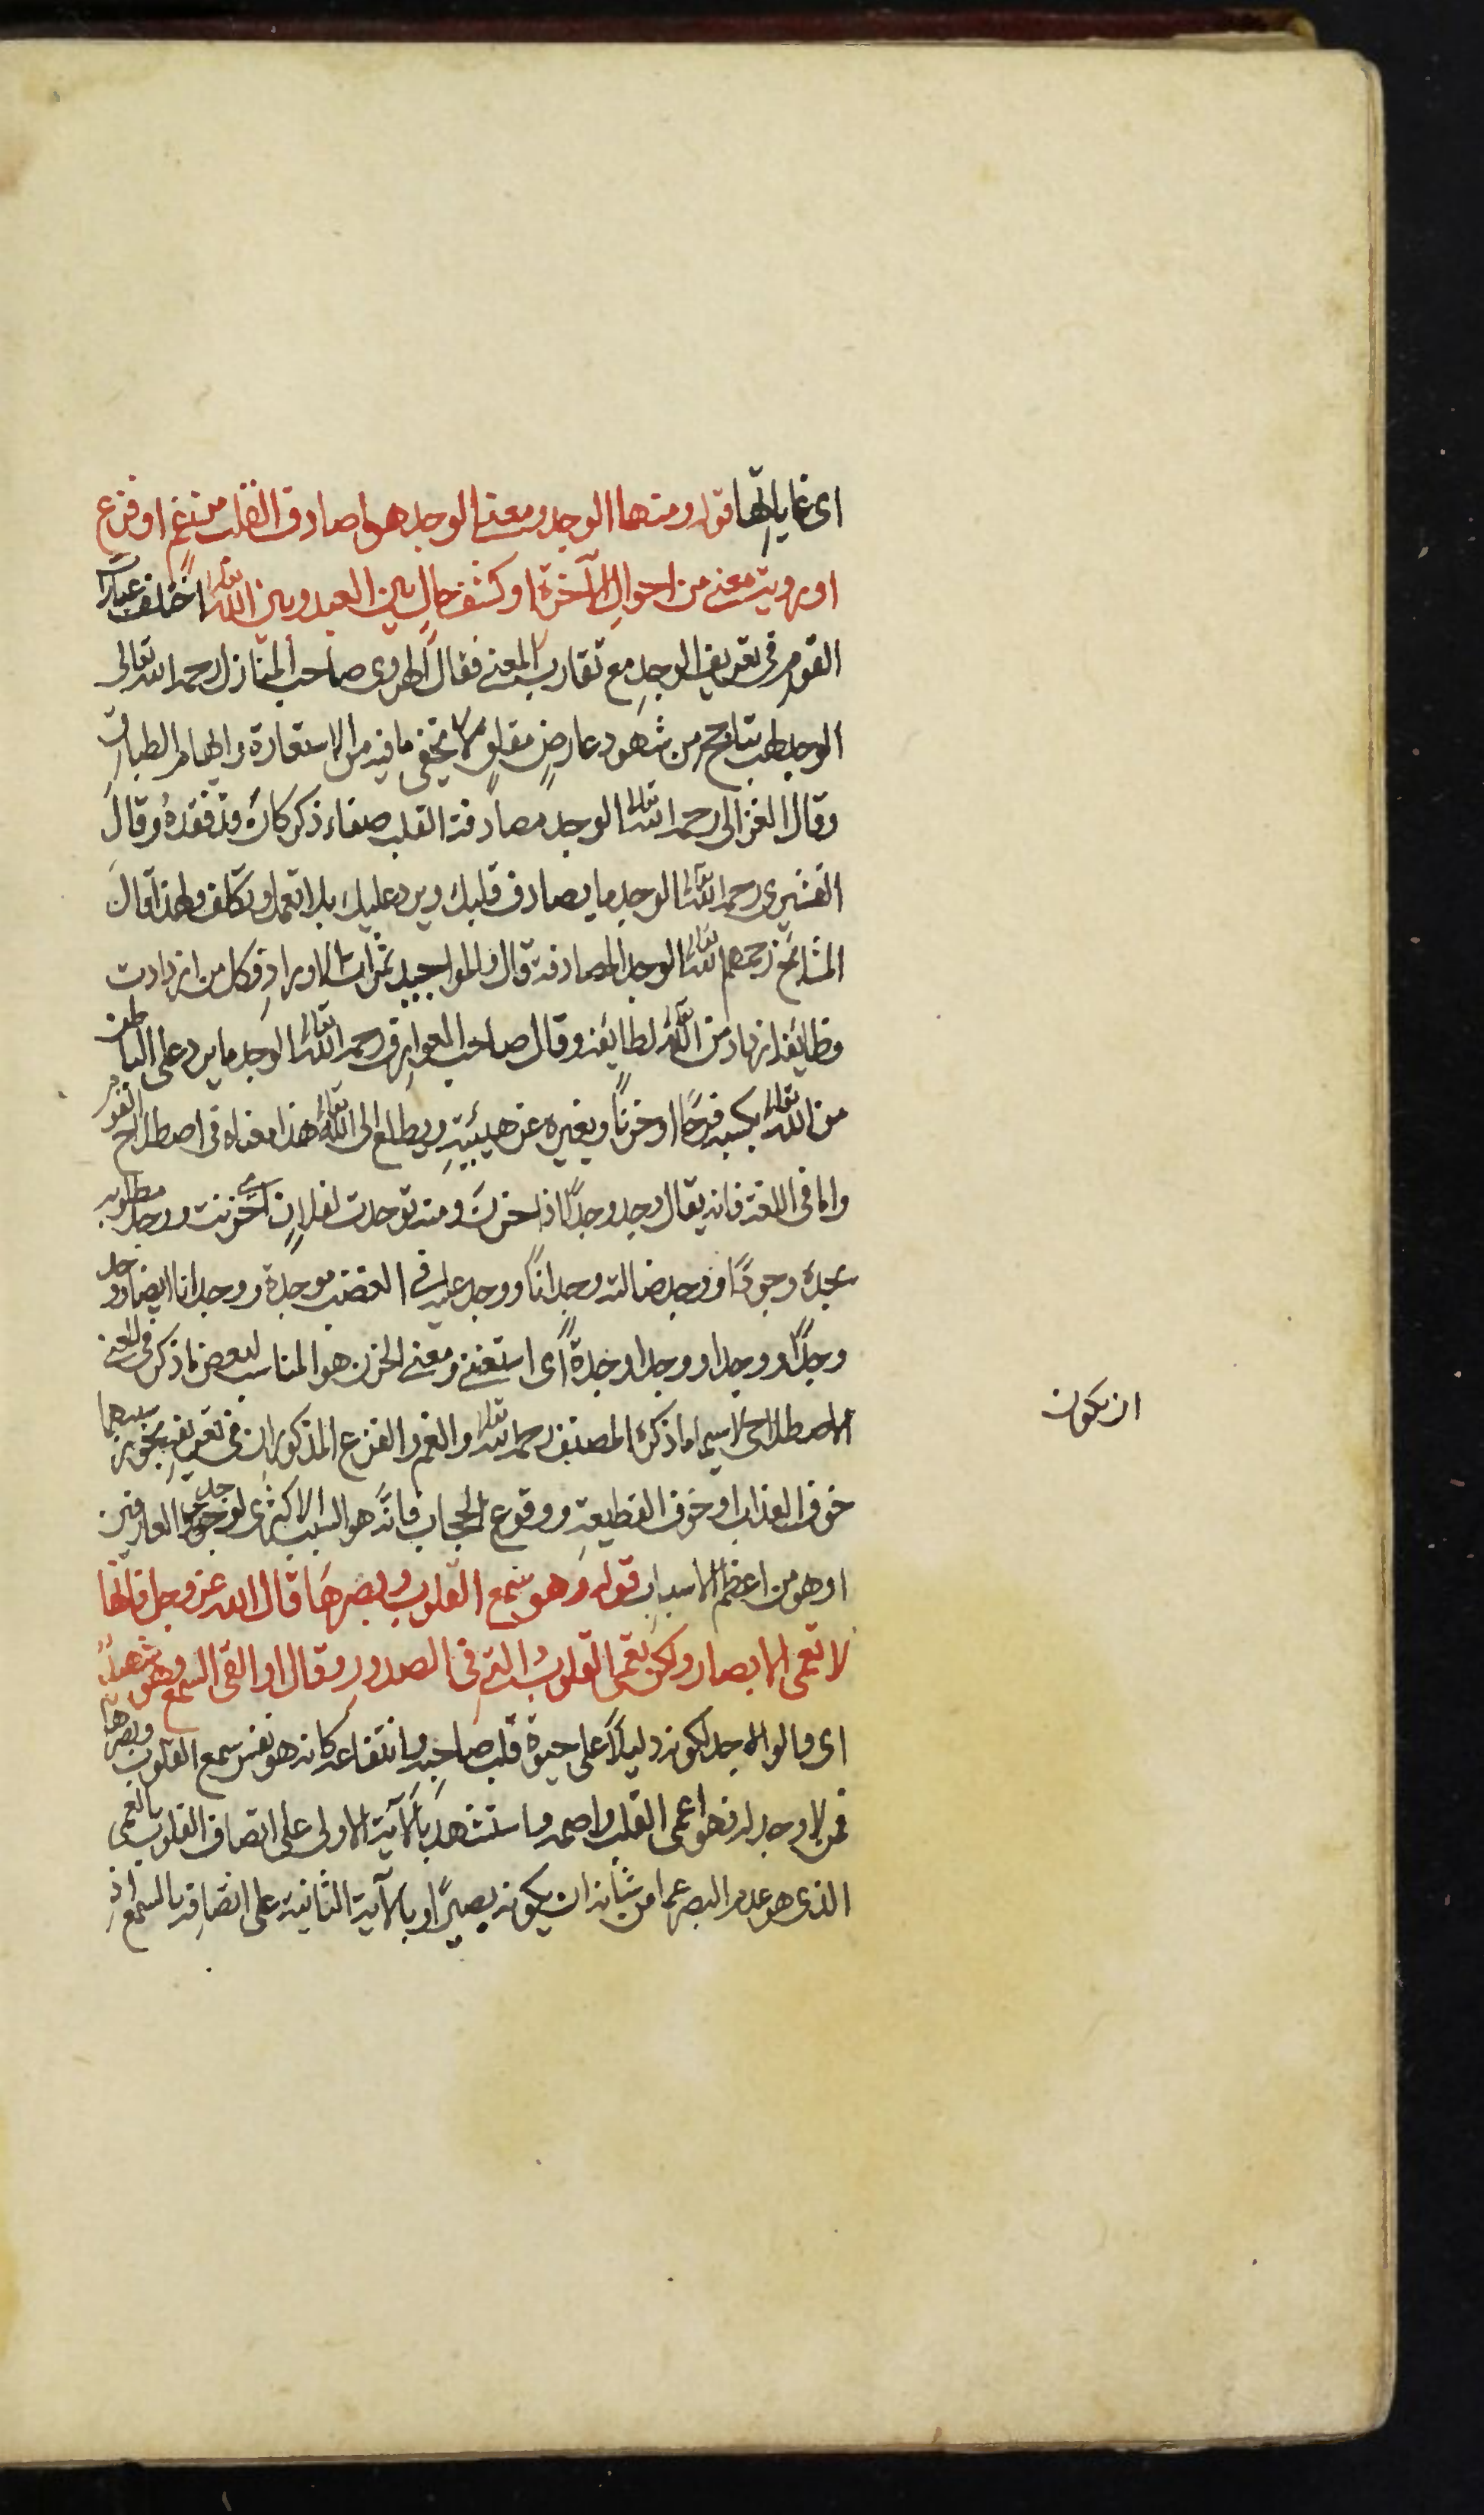 اى غاياتها قوله ومنها الوجد ومعنى الوجد هو ما صادف القلب من غم او فزع
او رويت معنى من احوال الآخرة او كشف حال بين العبد وبين الله تعالى اختلف عبارات
القوم فى تعريف الوجد مع تقارب المعنى فقال الهروى صاحب المنازل رحمه الله تعالى
الوجد لهب يتاجج من شهود عارض مقلق لا يخفى ما فيه من الاستعارة وايهام الطباق
وقال الغزالى رحمه الله تعالى الوجد مصادفة القلب صفاء ذكر كان قد فقده وقال
القشيرى رحمه الله تعالى الوجد ما يصادف قلبك ويرد عليك بلا تعمل وتكلف ولهذا قال
المشائخ رحمهم الله تعالى الوجد المصادفة قال والمواجيد ثمرات الاوراد فكل من ازدادت
وظائفه ازداد من الله تعالى لطائفه وقال صاحب العوارف رحمه الله تعالى الوجد ما يرد على الباطن
من الله تعالى يكسبه فرحًا او حزنًا ويغيره عن هيئته ويطلع الى الله تعالى هذا معناه فى اصطلاح القوم
واما فى اللغة فانه يقال وجد وجدًا اذا حزن ومنه توجدت لفلان اى حزنت ووجد مطلوبه
يجده وجودًا ووجد ضالته وجدانًا ووجد عليه فى الغضب موجدة ووجدانا ايضا ووجد
وجدًا ووجدا ووجدا وجدة اى استغنى ومعنى الحزن هو المناسب لبعض ما ذكر فى المعنى
الاصطلاحى لا سيما ما ذكره المصنف رحمه الله تعالى والغم والفزع المذكوران فى تعريفه يجوز سببهما
ان يكون
خوف العذاب او خوف القطيعة ووقوع الحجاب فانه هو السبب الاكثرى لوجد العارفين
او هو من اعظم الاسباب قوله وهو سمع القلوب وبصرها قال الله عز وجل فانها
لا تعمى الابصار ولكن تعمى القلوب التى فى الصدور وقال او القى السمع وهو شهيد
اى قالوا الوجد لكونه دليلاً على حيوة قلب صاحبه وانتفاعه كانه هو نفس سمع القلوب وبصرها
فمن لا وجد له فهو اعمى القلب واصمه واستشهد بالآية الاولى على اتصاف القلوب بالعمى
الذى هو عدم البصر عما من شأنه ان يكون بصيرًا وبالآية الثانية على اتصافه بالسمع اذ